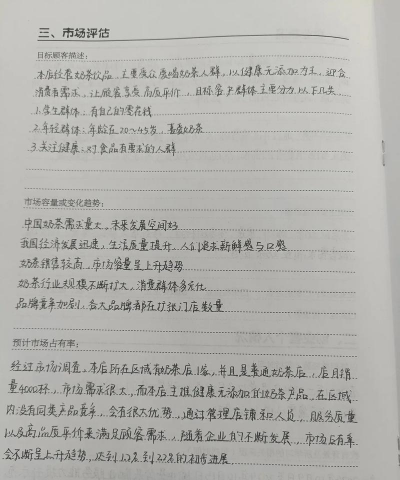 三、市场评估
目标顾客描述：
本店经营奶茶饮品，主要受众爱喝奶茶人群，以健康无添加为主，迎合
消费者需求，让顾客享受高质平价，目标客户群体主要分为以下几类
1.学生群体：有自己的零花钱
2.年轻群体：年龄在20~45岁，喜爱奶茶
3.关注健康：对食品有要求的人群
市场容量或变化趋势：
中国奶茶需求量大，未来发展空间好
我国经济发展迅速，生活质量提升，人们追求新鲜感与口感
奶茶销售较高，市场容量呈上升趋势
奶茶行业规模不断扩大，消费群体多元化
品牌竞争加剧，各大品牌都在扩张门店数量
预计市场占有率：
经过市场调查，本店所在区域有奶茶店1家，并且是普通奶茶店，店月销
量4000杯，市场需求很大，而本店主推健康无添加 奶茶产品，在区域
内没有同类产品竞争，会有很大优势，通过管理店铺和人员，服务质量
以及高品质平价来满足顾客需求，随着企业的不断发展，市场占有率
会不断呈上升趋势，达到 到 的初步进展